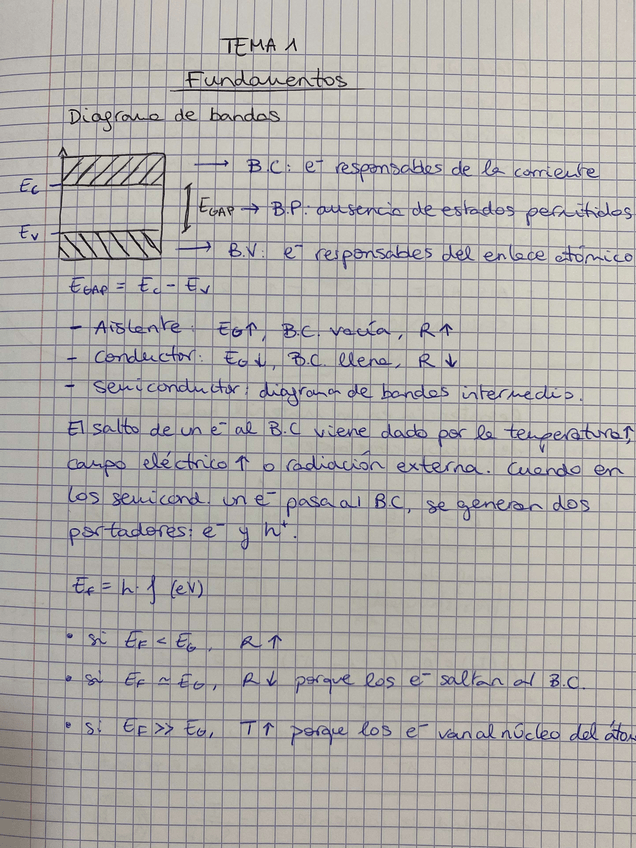 TEMA 1
Fundamentos
Diagrama de bandas
→ B.C: e⁻ responsables de la corriente
Ec
EGAP → B.P: ausencia de estados permitidos
Ev
→ B.V: e⁻ responsables del enlace atómico
EGAP = Ec - Ev
- Aislante: EG↑, B.C. vacía, R↑
- Conductor: EG↓, B.C. llena, R↓
- Semiconductor: diagrama de bandas intermedio.
El salto de un e⁻ al B.C viene dado por la temperatura↑,
campo eléctrico ↑ o radiación externa. Cuando en
los semicond. un e⁻ pasa al B.C, se generan dos
portadores: e⁻ y h⁺.
EF = h·f (eV)
• si EF < EG, R↑
• si EF ≃ EG, R↓ porque los e⁻ saltan al B.C.
• si EF >> EG, T↑ porque los e⁻ van al núcleo del